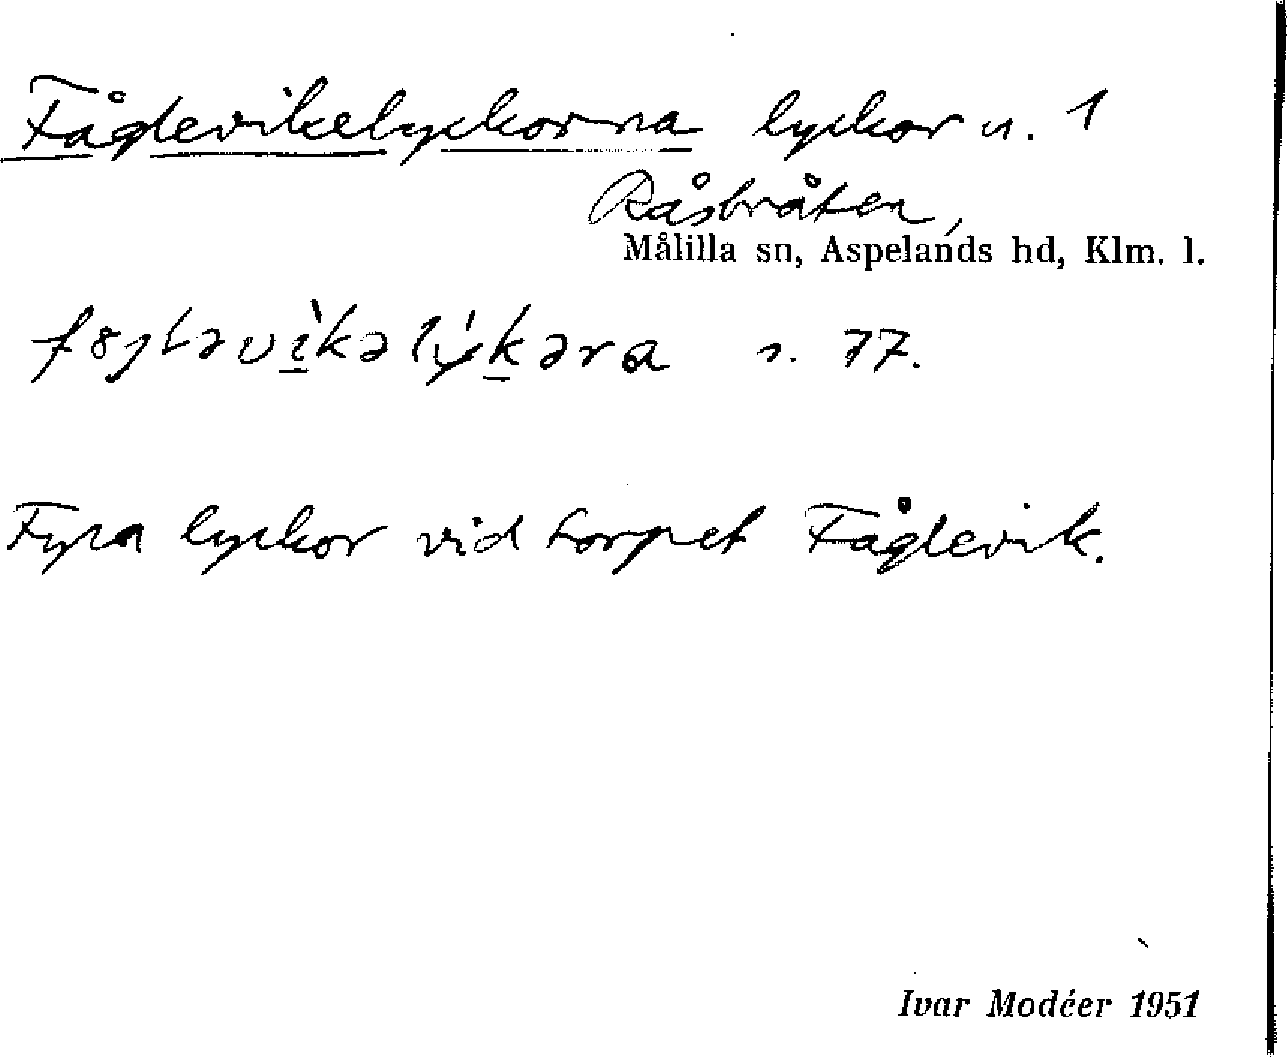 Fåglevikelyckorna lyckor u. 1
Råsbråten,
Målilla sn, Aspelands hd, Klm. l.
s. 77.
Fyra lyckor vid torpet Fåglevik.
Ivar Modéer 1951